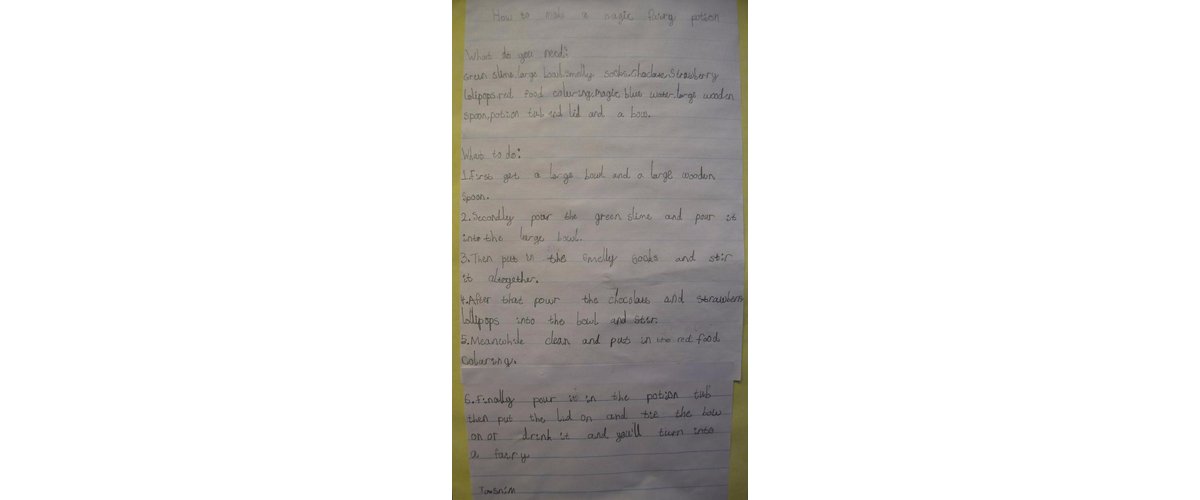 How to make a magic fairy potion
What do you need:
Green slime, large bowl, smelly socks, choclate, Strawberry
lolipops, red food colouring, magic blue water, large wooden
spoon, potion tub and lid and a bow.
What to do:
1.First get a large bowl and a large wooden
spoon.
2.Secondley pour the green slime and pour it
into the large bowl.
3.Then put in the smelly socks and stir
it altogether.
4.After that pour the choclate and strawberry
lollipops into the bowl and stir.
5.Meanwhile clean and put in the red food
colouring.
6.Finally pour it in the potion tub
then put the lid on and tie the bow
on or drink it and you'll turn into
a fairy
Tawsnim